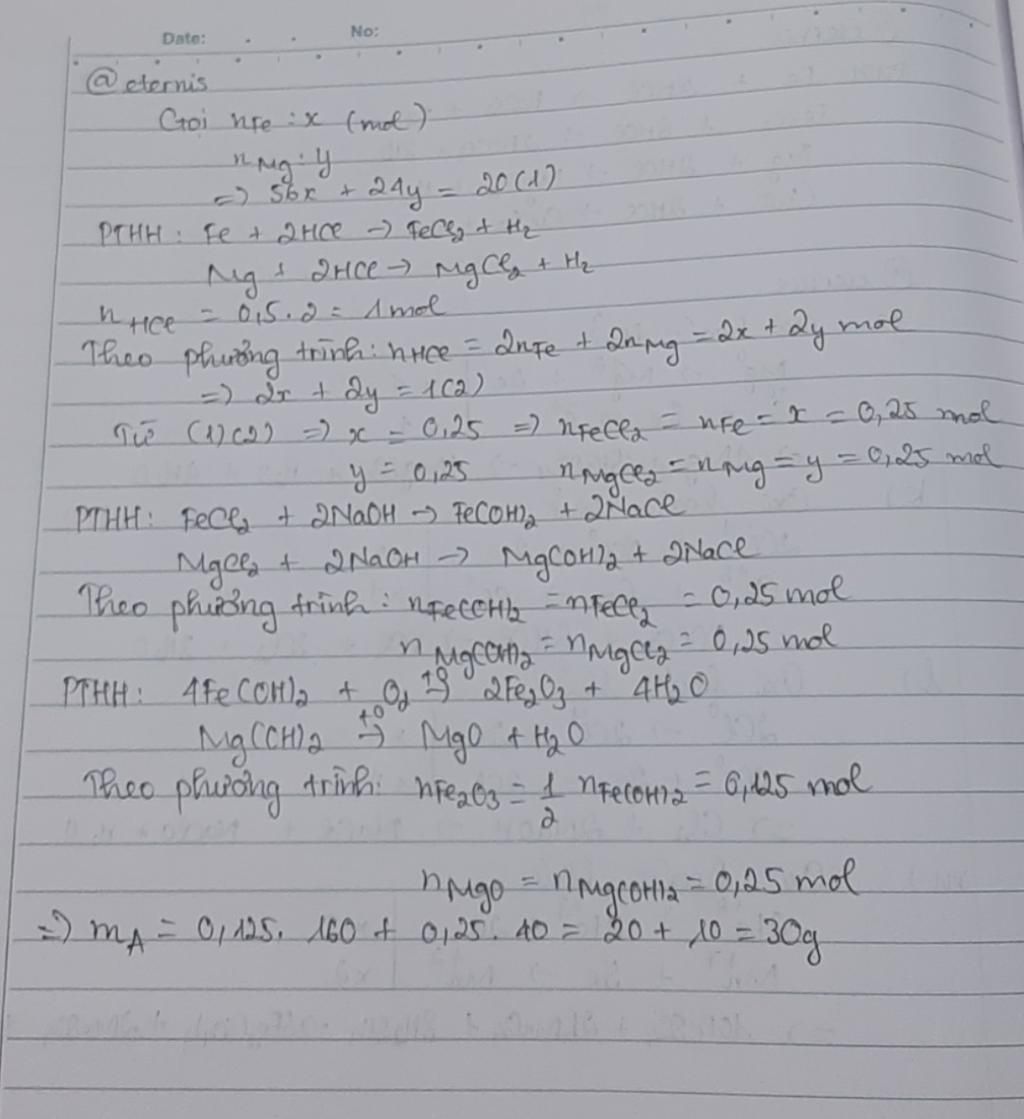 Date: No:
@eternis
Gọi nFe : x (mol)
nMg : y
=> 56x + 24y = 20 (1)
PTHH : Fe + 2HCl -> FeCl2 + H2
Mg + 2HCl -> MgCl2 + H2
nHCl = 0,5 . 2 = 1 mol
Theo phương trình : nHCl = 2nFe + 2nMg = 2x + 2y mol
=> 2x + 2y = 1 (2)
Từ (1) (2) => x = 0,25 => nFeCl2 = nFe = x = 0,25 mol
y = 0,25 nMgCl2 = nMg = y = 0,25 mol
PTHH : FeCl2 + 2NaOH -> Fe(OH)2 + 2NaCl
MgCl2 + 2NaOH -> Mg(OH)2 + 2NaCl
Theo phương trình : nFe(OH)2 = nFeCl2 = 0,25 mol
nMg(OH)2 = nMgCl2 = 0,25 mol
PTHH : 4Fe(OH)2 + O2 t° -> 2Fe2O3 + 4H2O
Mg(OH)2 t° -> MgO + H2O
Theo phương trình : nFe2O3 = 1/2 nFe(OH)2 = 0,125 mol
nMgO = nMg(OH)2 = 0,25 mol
=> mA = 0,125. 160 + 0,25. 40 = 20 + 10 = 30g